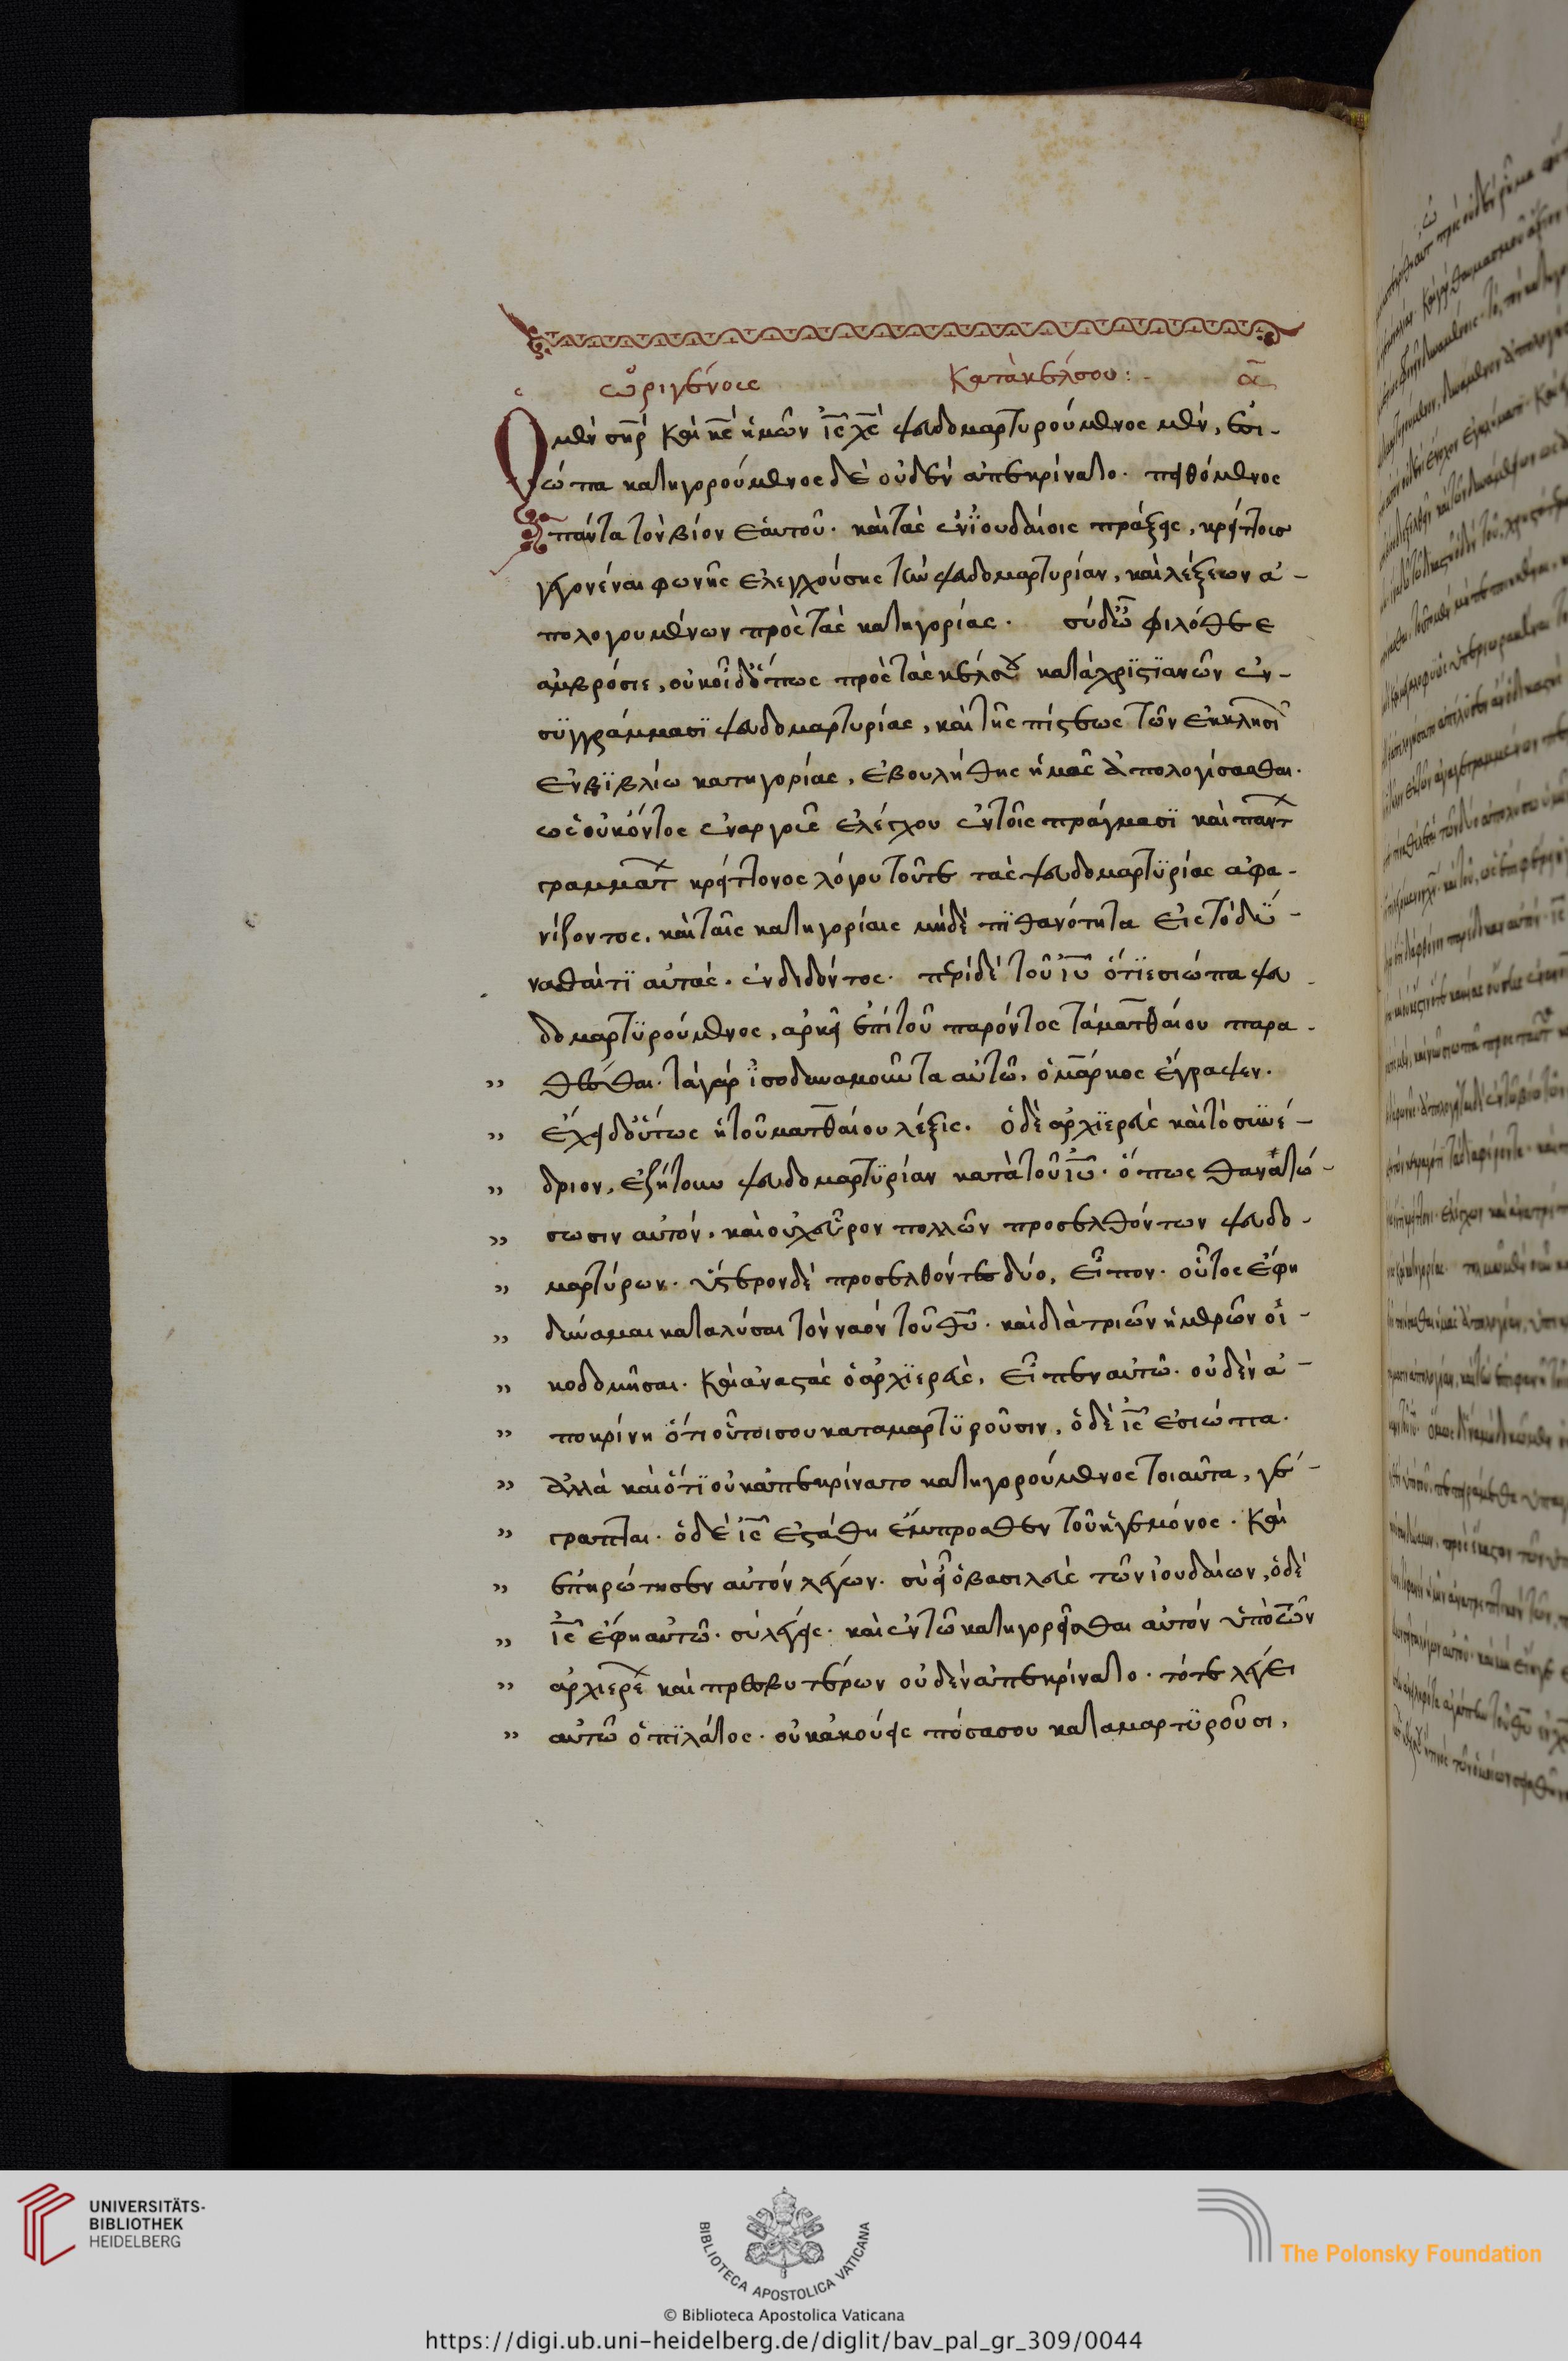 ὠριγένους κατὰ κέλσου :- α
Ὁ μὲν σηρ καὶ κς ἡμῶν ις χς ψευδομαρτυρούμενος μὲν, ἐσι-
ώπα κατηγορούμενος δὲ οὐδὲν ἀπεκρίνατο. πειθόμενος
πάντα τὸν βίον ἑαυτοῦ. καὶ τὰς ἐν ἰουδαίοις πράξεις, κρείττους
γεγονέναι φωνῆς ἐλεγχούσης τὴν ψευδομαρτυρίαν, καὶ λέξεων ἀ-
πολογουμένων πρὸς τὰς κατηγορίας. σὺ δ ὦ φιλόθεε
ἀμβρόσιε, οὐκ οἶδ ὅπως πρὸς τὰς κέλσου κατὰ χριστιανῶν ἐν
συγγράμμασι ψευδομαρτυρίας, καὶ τῆς πίστεως τῶν ἐκκλησι
ἐν βιβλίω κατηγορίας, ἐβουλήθης ἡμᾶς ἀπολογίσασθαι.
ὡς οὐκ ὄντος ἐναργοῦς ἐλέγχου ἐν τοῖς πράγμασι καὶ παντ
γραμματ κρείττονος λόγου τοῦ τε τὰς ψευδομαρτυρίας ἀφα-
νίζοντος, καὶ ταῖς κατηγορίαις μηδὲ πιθανότητα εἰς τὸ δύ-
νασθαί τι αὐτάς. ἐνδιδόντος. περὶ δὲ τοῦ ιυ ὅτι ἐσιώπα ψευ-
δομαρτυρούμενος, ἀρκεῖ ἐπὶ τοῦ παρόντος τὰ ματθαίου παρα-
„ θέσθαι. τὰ γὰρ ἰσοδυναμοῦντα αὐτῶ, ὁ μάρκος ἔγραψεν.
„ ἔχει δ οὕτως ἡ τοῦ ματθαίου λέξις. ὁ δὲ ἀρχιερεὺς καὶ τὸ συνέ-
„ δριον, ἐζήτουν ψευδομαρτυρίαν κατὰ τοῦ ιυ. ὅπως θανατώ-
„ σωσιν αὐτόν. καὶ οὐχ εὗρον πολλῶν προσελθόντων ψευδο-
„ μαρτύρων. ὕστερον δὲ προσελθόντες δύο, εἶπον. οὗτος ἔφη
„ δύναμαι καταλύσαι τὸν ναὸν τοῦ θυ. καὶ διὰ τριῶν ἡμερῶν οἰ-
„ κοδομῆσαι. καὶ ἀναστὰς ὁ ἀρχιερεὺς, εἶπεν αὐτῶ. οὐδὲν ἀ-
„ ποκρίνη ὅτι οὗτοι σου καταμαρτυροῦσιν, ὁ δὲ ις ἐσιώπα.
„ ἀλλὰ καὶ ὅτι οὐκ ἀπεκρίνατο κατηγορούμενος τοιαῦτα, γέ-
„ γραπται. ὁ δὲ ις ἐστάθη ἔμπροσθεν τοῦ ἡγεμόνος. καὶ
„ ἐπηρώτησεν αὐτὸν λέγων. σὺ εἶ ὁ βασιλεὺς τῶν ἰουδαίων, ὁ δὲ
„ ις ἔφη αὐτῶ. σὺ λέγεις. καὶ ἐν τῶ κατηγορεῖσθαι αὐτὸν ὑπὸ τῶν
„ ἀρχιερε καὶ πρεσβυτέρων οὐδὲν ἀπεκρίνατο. τότε λέγει
„ αὐτῶ ὁ πιλάτος. οὐκ ἀκούεις πόσα σου καταμαρτυροῦσι,
UNIVERSITÄTS-
BIBLIOTHEK
HEIDELBERG
BIBLIOTECA APOSTOLICA VATICANA
The Polonsky Foundation
© Biblioteca Apostolica Vaticana
https://digi.ub.uni-heidelberg.de/diglit/bav_pal_gr_309/0044